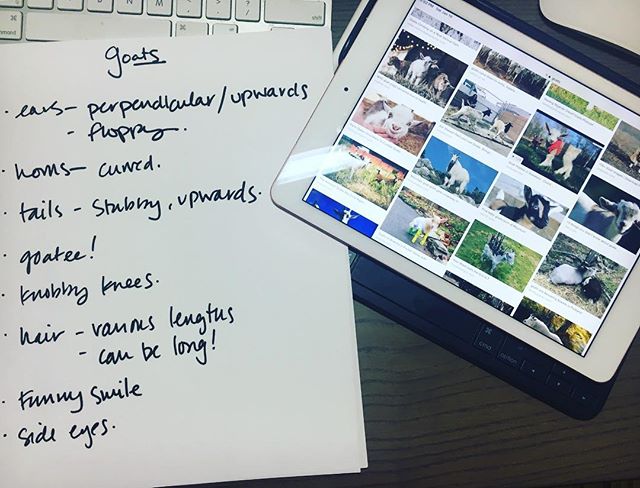 goats
· ears - perpendicular/upwards
- floppy.
· horns - curved.
· tails - stubby, upwards.
· goatee!
· knobby knees.
· hair - various lengths
- can be long!
· funny smile
· side eyes.
command
option
cmd
option